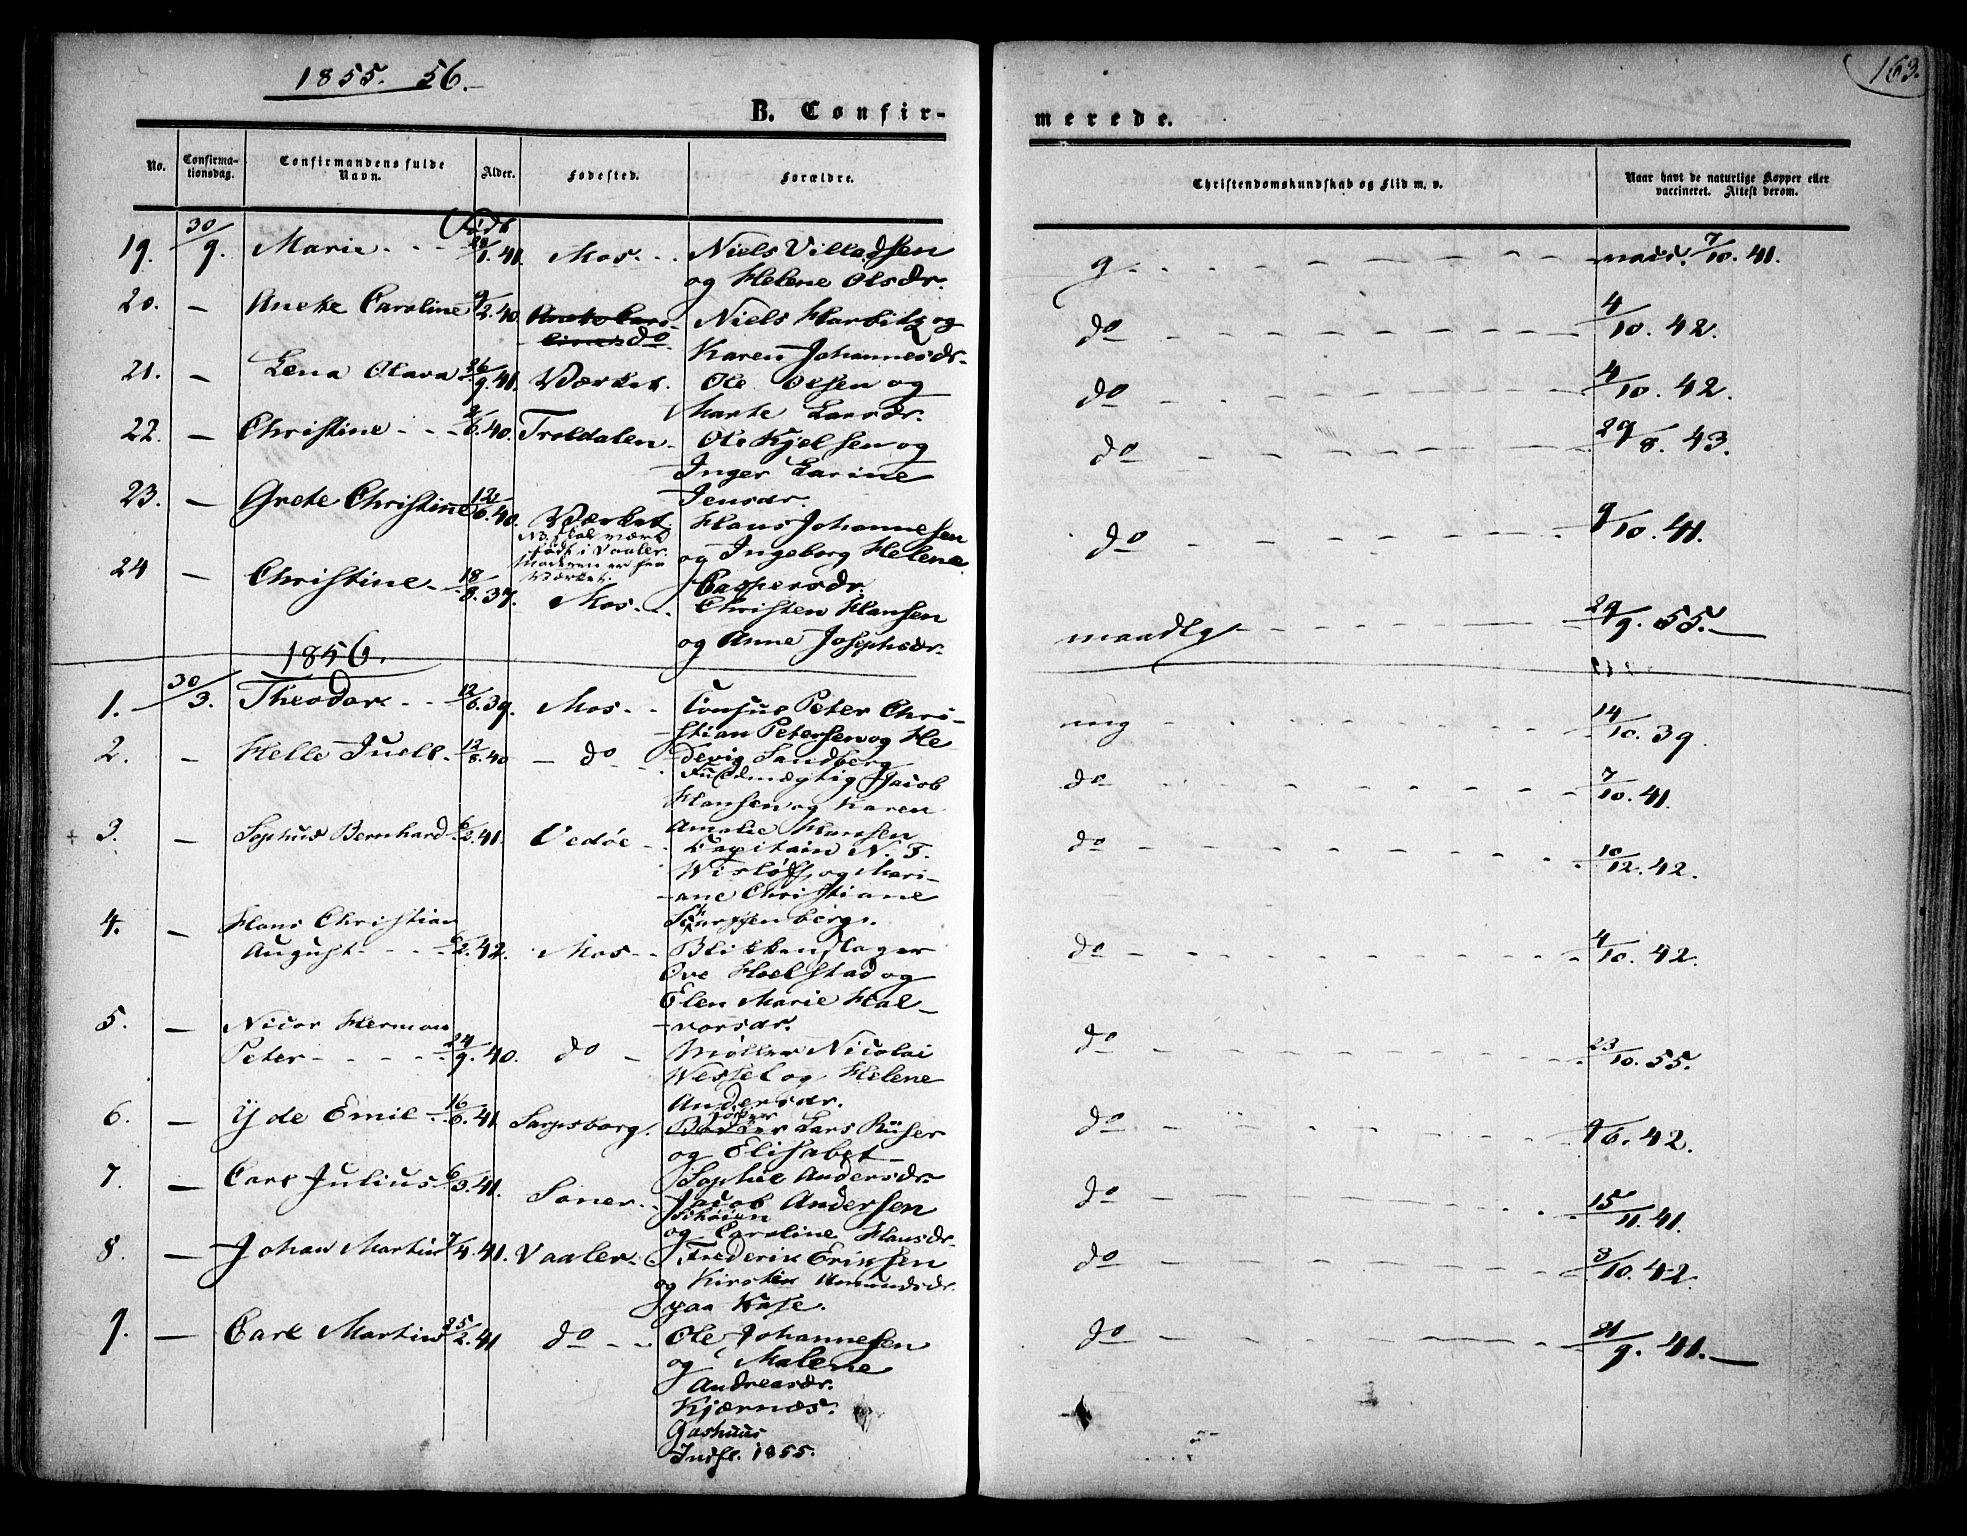 1855. 56.
163.
B. Confir-
merede.
No.
Confirma-
tionsdag.
Confirmandens fulde
Navn.
Alder.
Fødested.
Forældre.
Christendomskundskab og Flid m. v.
Naar havt de naturlige Kopper eller
vaccineret. Attest derom.
Født
19. 30/9. Marie - - 1.41. Mos. - Niels Villadsen g. vacc. 7/10. 41.
og Helene Olsdr.
20. — Anete Caroline 9/2.40. do Niels Harbitz og do 4/10. 42.
Karen Johannesdr.
21. — Lena Olava 26/9.41. Værket. Ole Olsen og do 4/10. 42.
Marte Larsdr.
22. — Christine - - 2/6.40. Troldalen Ole Kjelsen og do 29/8. 43.
Inger Larine
Jensdr.
23. — Grete Christine 12/6.40. Værket Hans Johannesen do 9/10. 41.
NB. skal være
født i Vaaler.
Moderen er fra
Værket.
og Ingeborg Helene
Caspersdr.
24 — Christine 18/8.37. Mos. Christen Hansen maadlg 29/9. 55.
og Anne Josephsdr.
1856.
1. 30/3. Theodor - - 12/6.39. Mos. Consul Peter Chri- mg 14/10. 39.
stian Petersen og He
devig Sandberg
2. — Helle Juell 12/8.40 do Fuldmægtig Jacob do 7/10. 41.
Hansen og Karen
Amalie Hansen
3. — Sophus Bernhard 6/2.41. Vedøe Capitain N. F. do 10/12. 42.
Wisløff og Mari-
ane Christiane
Scharffenberg.
4. — Hans Christian
August - - 6/2.42. Mos Blikkenslager do 4/10. 42.
Ove Hoelstad og
Elen Marie Hal-
vorsdr.
5. — Nicor Herman
Peter - - 24/9.40. do Møller Nicolai do 23/10. 55.
Wessel og Helene
Andersdr.
6. — Yde Emil 16/6.41 Sarpsborg. Lars Riiser do 9/6. 42.
og Elisabet
Sophie Andersdr.
7. — Carl Julius 6/3.41. Soner Jacob Andersen do 15/11. 41.
Skoien
og Caroline Hansdr.
8. — Johan Martin 7/4.41. Vaaler Frederik Eriksen do 3/10. 42.
og Kirstin Amundsdr.
paa Kase.
9. — Carl Martin 25/2.41 do Ole Johannesen do 21/9. 41.
og Malene
Andreasdr.
Kjærnæs.
Indfl. 1855.